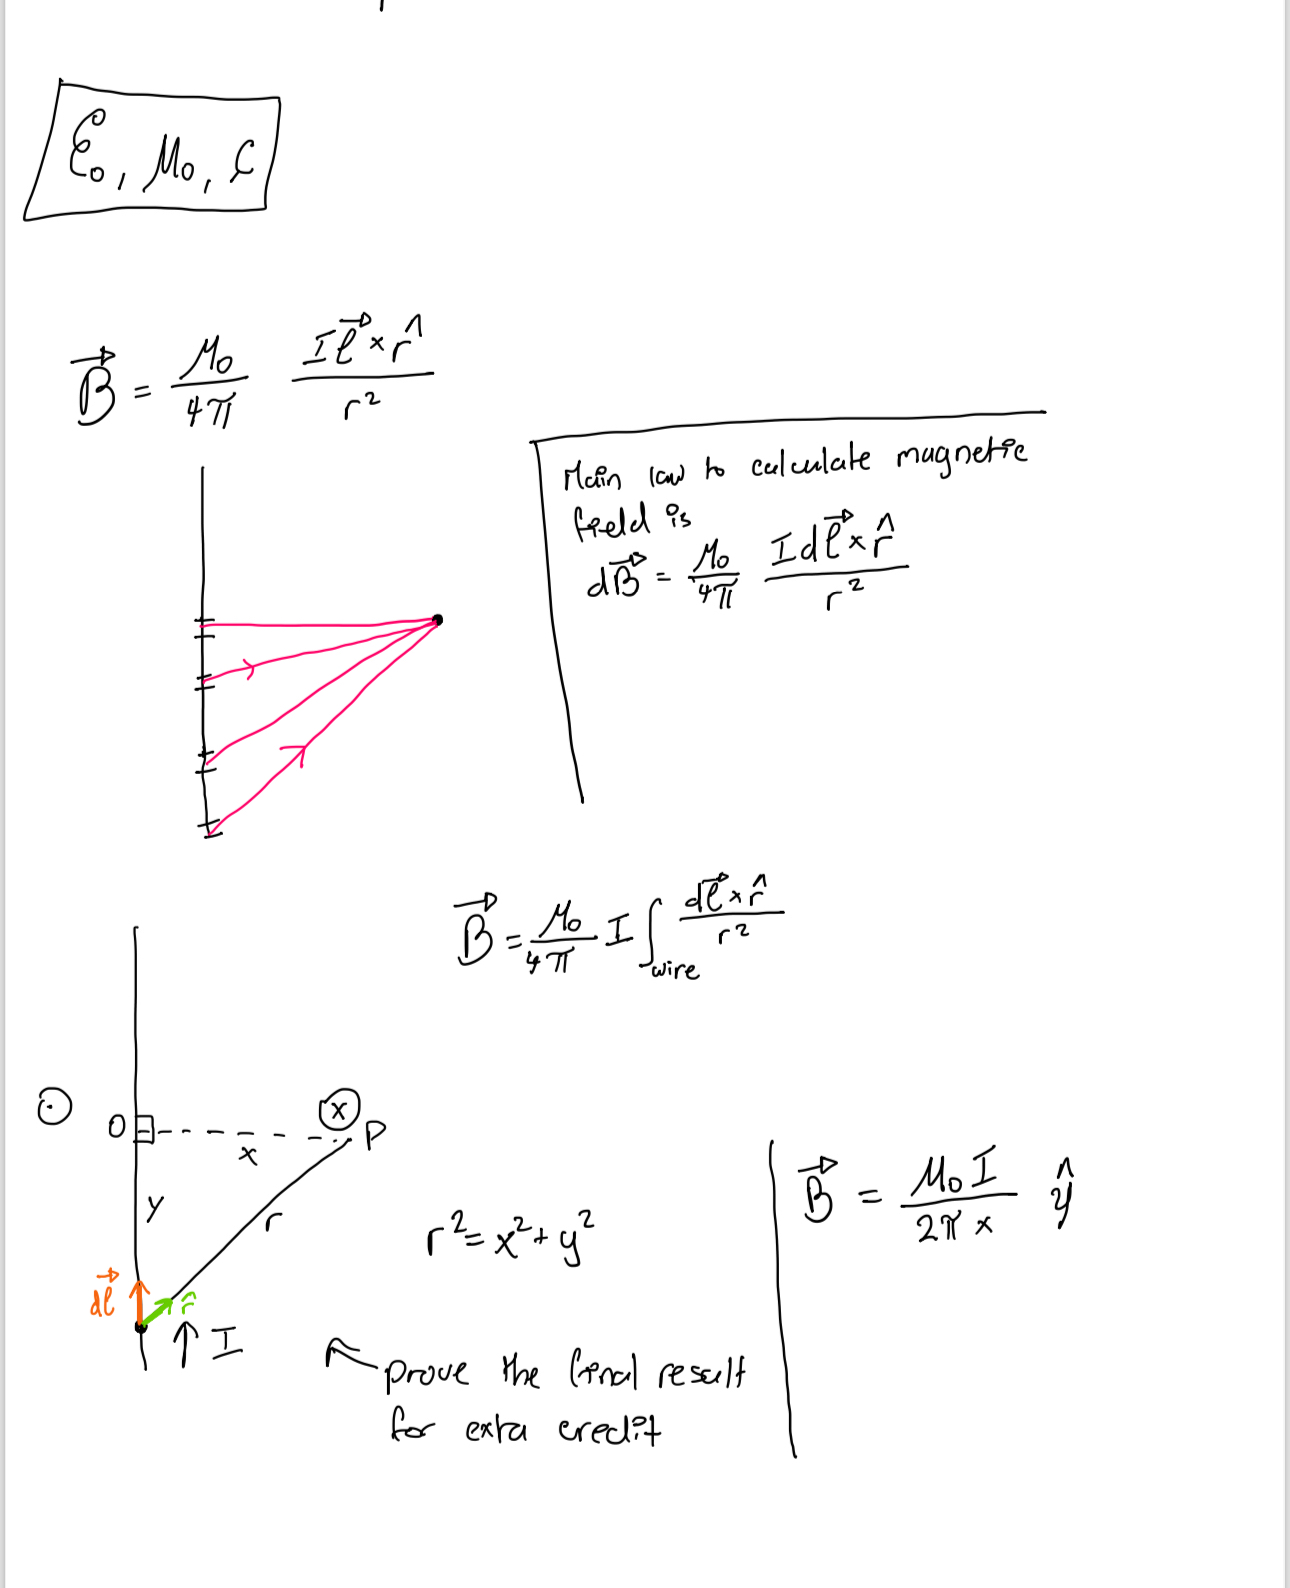 ε₀, μ₀, c
B⃗ = μ₀/4π Iℓ⃗ × r̂/r²
Main law to calculate magnetic
field is
dB⃗ = μ₀/4π Idℓ⃗ × r̂/r²
B⃗ = μ₀/4π I ∫wire dℓ⃗ × r̂/r²
O
x
P
x
y
r
r² = x² + y²
B⃗ = μ₀I/2πx ŷ
dℓ⃗
r̂
↑ I
prove the final result
for exta credit